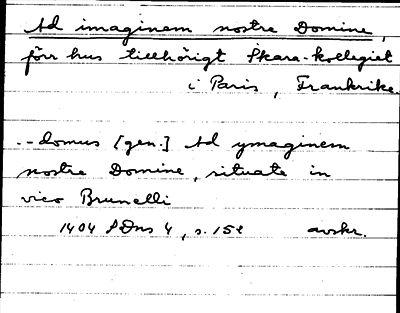 Ad imaginem nostre Domine,
förr hus tillhörigt Skara-kollegiet
i Paris, Frankrike
..domus [gen.] Ad ymaginem
nostre Domine, situate in
vico Brunelli
1404 SDns 4, s. 152 avskr.